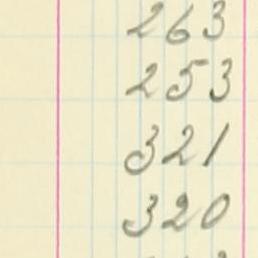 263
253
321
320